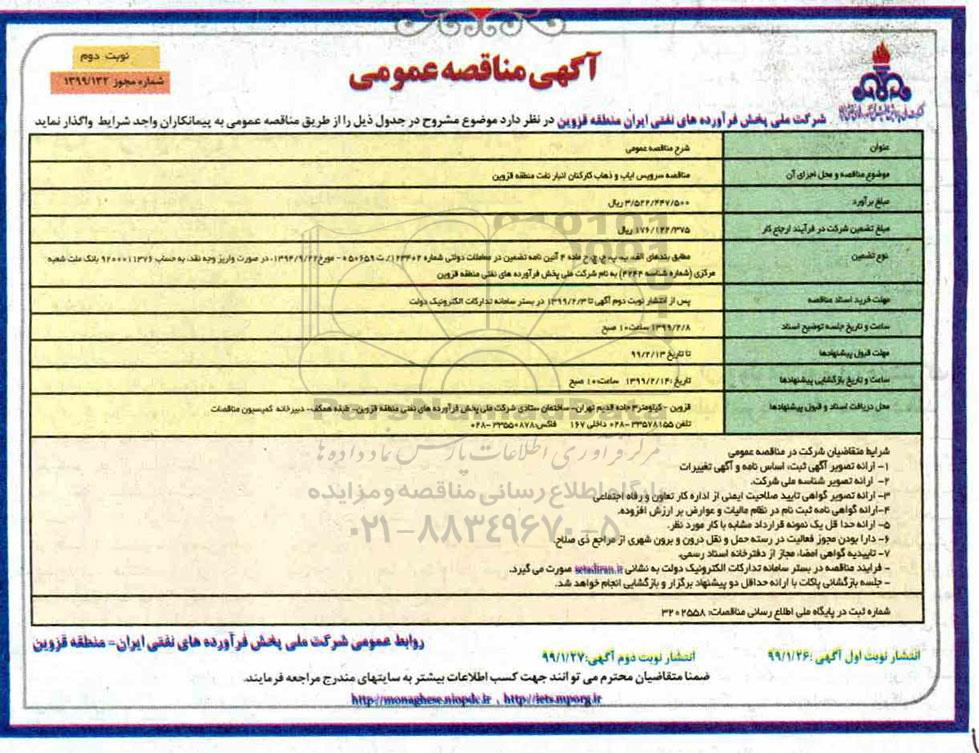 نوبت دوم
شماره مجوز ۱۳۹۹/۱۳۲
آگهی مناقصه عمومی
شرکت ملی پخش فرآورده های نفتی ایران منطقه قزوین در نظر دارد موضوع مشروح در جدول ذیل را از طریق مناقصه عمومی به پیمانکاران واجد شرایط واگذار نماید
عنوان شرح مناقصه عمومی
موضوع مناقصه و محل اجرای آن مناقصه سرویس ایاب و ذهاب کارکنان انبار نفت منطقه قزوین
مبلغ برآورد ۳/۵۲۲/۴۴۷/۵۰۰ ریال
مبلغ تضمین شرکت در فرآیند ارجاع کار ۱۷۶/۱۲۲/۳۷۵ ریال
نوع تضمین مطابق بندهای الف، ب، پ، ج، چ، ح ماده ۴ آئین نامه تضمین در معاملات دولتی شماره ۱۲۳۴۰۲/ت ۵۰۶۵۹ه - مورخ ۱۳۹۴/۹/۲۲، در صورت واریز وجه نقد، به حساب ۹۲۰۰۰۱۱۳۷۶ بانک ملت شعبه
مرکزی (شماره شناسه ۴۲۴۴) به نام شرکت ملی پخش فرآورده های نفتی منطقه قزوین
مهلت خرید اسناد مناقصه پس از انتشار نوبت دوم آگهی تا ۱۳۹۹/۲/۳ در بستر سامانه تدارکات الکترونیک دولت
ساعت و تاریخ جلسه توضیح اسناد ۱۳۹۹/۲/۸ ساعت ۱۰ صبح
مهلت قبول پیشنهادها تا تاریخ ۹۹/۲/۱۳
ساعت و تاریخ بازگشایی پیشنهادها تاریخ ۱۳۹۹/۲/۱۴ ساعت ۱۰ صبح
محل دریافت اسناد و قبول پیشنهادها قزوین - کیلومتر ۳ جاده قدیم تهران - ساختمان ستادی شرکت ملی پخش فرآورده های نفتی منطقه قزوین - طبقه همکف - دبیرخانه کمیسیون مناقصات
تلفن ۳۳۵۷۸۱۵۵-۰۲۸ داخلی ۱۶۷ فاکس: ۳۳۵۵۰۸۷۸-۰۲۸
شرایط متقاضیان شرکت در مناقصه عمومی
۱- ارائه تصویر آگهی ثبت، اساس نامه و آگهی تغییرات
۲- ارائه تصویر شناسه ملی شرکت.
۳- ارائه تصویر گواهی تایید صلاحیت ایمنی از اداره کار تعاون و رفاه اجتماعی
۴- ارائه گواهی نامه ثبت نام در نظام مالیات و عوارض بر ارزش افزوده.
۵- ارائه حدا قل یک نمونه قرارداد مشابه با کار مورد نظر.
۶- دارا بودن مجوز فعالیت در رسته حمل و نقل درون و برون شهری از مراجع ذی صلاح.
۷- تاییدیه گواهی امضاء مجاز از دفترخانه اسناد رسمی.
- فرایند مناقصه در بستر سامانه تدارکات الکترونیک دولت به نشانی setadiran.ir صورت می گیرد.
- جلسه بازگشائی پاکات با ارائه حداقل دو پیشنهاد برگزار و بازگشایی انجام خواهد شد.
شماره ثبت در پایگاه ملی اطلاع رسانی مناقصات: ۳۲۰۲۵۵۸
روابط عمومی شرکت ملی پخش فرآورده های نفتی ایران - منطقه قزوین
انتشار نوبت اول آگهی: ۹۹/۱/۲۶ انتشار نوبت دوم آگهی: ۹۹/۱/۲۷
ضمنا متقاضیان محترم می توانند جهت کسب اطلاعات بیشتر به سایتهای مندرج مراجعه فرمایند.
http://monaghese.niopdc.ir , http://iets.mporg.ir
ParsNamadData
مرکز فرآوری اطلاعات پارس نماد داده ها
پایگاه اطلاع رسانی مناقصه و مزایده
۰۲۱-۸۸۳۴۹۶۷۰-۵